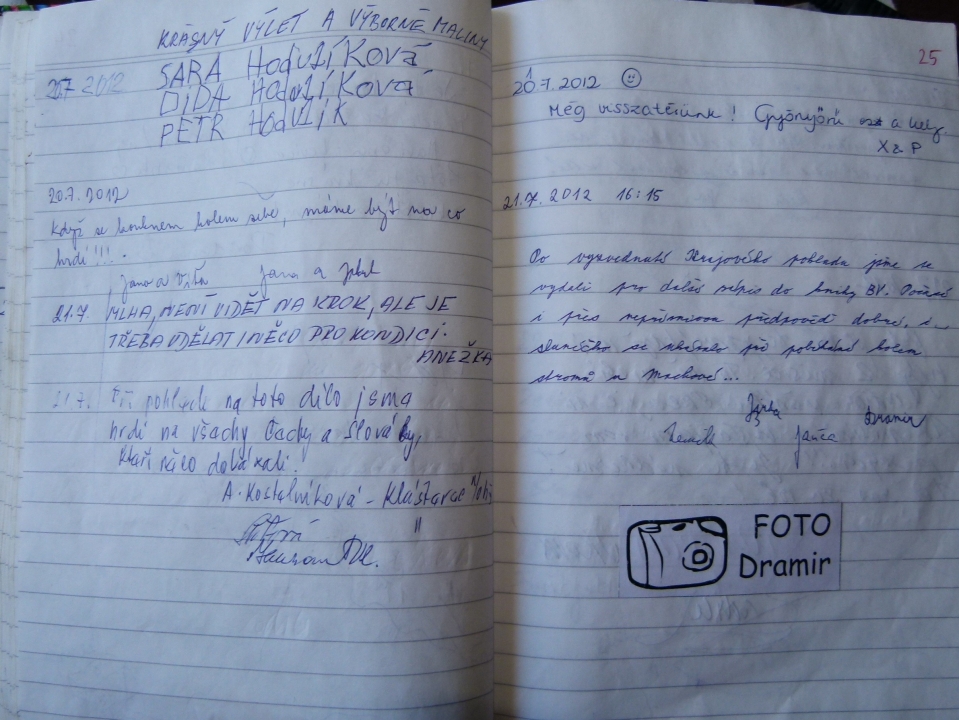 KRÁSNÝ VÝLET A VÝBORNÉ MALINY
20.7 2012 SÁRA HodulíKová
DIDA HodulíKová
PETR HodulíK
20.7.2012
Když se kouknem kolem sebe, máme být na co
hrdí!!!.
Jana a Víťa Jana a
21.7. MLHA, NENÍ VIDĚT NA KROK, ALE JE
TŘEBA UDĚLAT I NĚCO PRO KONDICI.
ANEŽKA
21.7. Při pohledu na toto dílo jsme
hrdí na všechy Čechy a Slováky,
kteří něco dokázali.
A. Kostelníková - Klášterec n/Ohří
"
25
20.7.2012
Még visszatérünk! Gyönyörű a hely
X a P
21.7.2012 16:15
Po vyzvednutí Krajového poklada jsme se
vydali pro další zápis do knihy BV. Počasí
i přes nepříznivou předpověď dobré, i
sluníčko se ukázalo při pokukání kolem
stromů u
Jirka Dramir
Zdeněk Janča
FOTO
Dramir